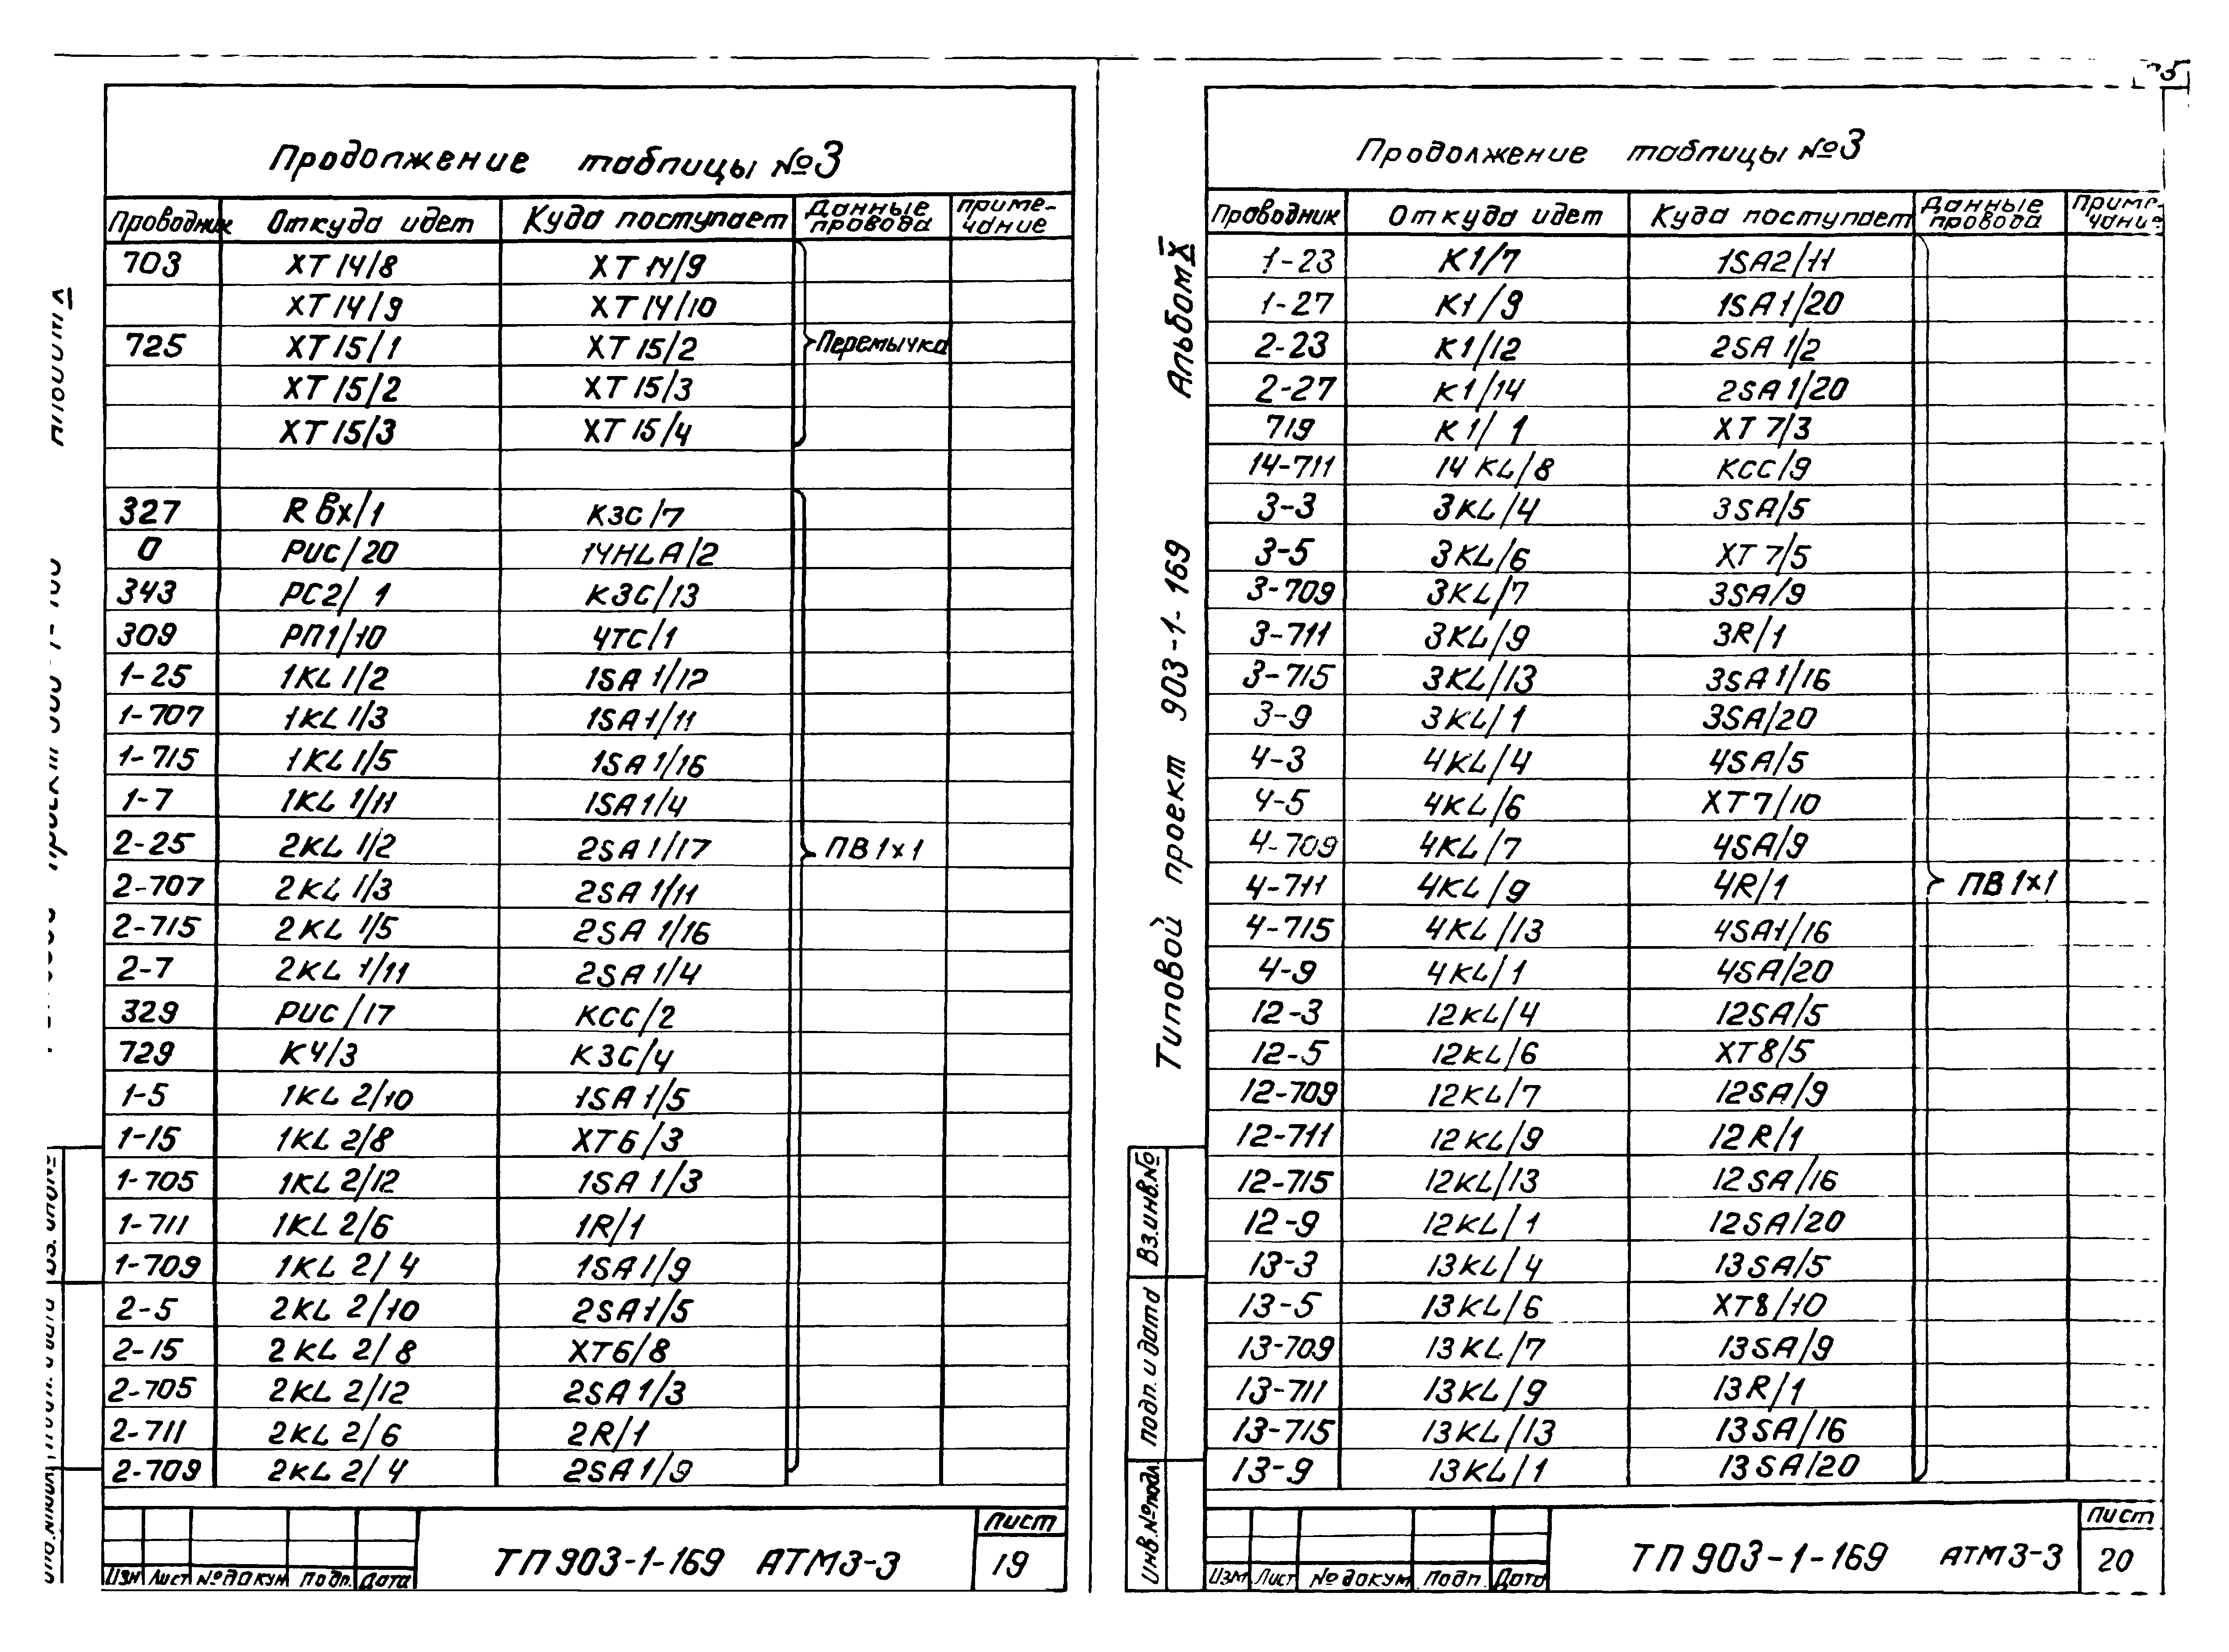 Продолжение таблицы №3
Проводник Откуда идет Куда поступает Данные провода Приме-чание
703 XT14/8 XT14/9
XT14/9 XT14/10
725 XT15/1 XT15/2 Перемычка
XT15/2 XT15/3
XT15/3 XT15/4
327 Rвх/1 КЗС/7
0 РИС/20 14HLA/2
343 РС2/1 КЗС/13
309 РП1/10 4ТС/1
1-25 1KL1/2 1SA1/17
1-707 1KL1/3 1SA1/11
1-715 1KL1/5 1SA1/16
1-7 1KL1/11 1SA1/4
2-25 2KL1/2 2SA1/17 ПВ1х1
2-707 2KL1/3 2SA1/11
2-715 2KL1/5 2SA1/16
2-7 2KL1/11 2SA1/4
329 РИС/17 КСС/2
729 К4/3 КЗС/4
1-5 1KL2/10 1SA1/5
1-15 1KL2/8 XT6/3
1-705 1KL2/12 1SA1/3
1-711 1KL2/6 1R/1
1-709 1KL2/4 1SA1/9
2-5 2KL2/10 2SA1/5
2-15 2KL2/8 XT6/8
2-705 2KL2/12 2SA1/3
2-711 2KL2/6 2R/1
2-709 2KL2/4 2SA1/9
Изм Лист №докум Подп. Дата
ТП903-1-169 АТМ3-3
Лист
19
Альбом X
Типовой проект 903-1-169
Вз.инв.№
Подп. и дата
Инв.№подл.
Продолжение таблицы №3
Проводник Откуда идет Куда поступает Данные провода Приме-чание
1-23 К1/7 1SA2/11
1-27 К1/9 1SA1/20
2-23 К1/12 2SA1/2
2-27 К1/14 2SA1/20
719 К1/1 XT7/3
14-711 14KL/8 КСС/9
3-3 3KL/4 3SA/5
3-5 3KL/6 XT7/5
3-709 3KL/7 3SA/9
3-711 3KL/9 3R/1
3-715 3KL/13 3SA1/16
3-9 3KL/1 3SA/20
4-3 4KL/4 4SA/5
4-5 4KL/6 XT7/10
4-709 4KL/7 4SA/9
4-711 4KL/9 4R/1 ПВ1х1
4-715 4KL/13 4SA1/16
4-9 4KL/1 4SA/20
12-3 12KL/4 12SA/5
12-5 12KL/6 XT8/5
12-709 12KL/7 12SA/9
12-711 12KL/9 12R/1
12-715 12KL/13 12SA/16
12-9 12KL/1 12SA/20
13-3 13KL/4 13SA/5
13-5 13KL/6 XT8/10
13-709 13KL/7 13SA/9
13-711 13KL/9 13R/1
13-715 13KL/13 13SA/16
13-9 13KL/1 13SA/20
Изм Лист №докум Подп. Дата
ТП903-1-169 АТМ3-3
Лист
20